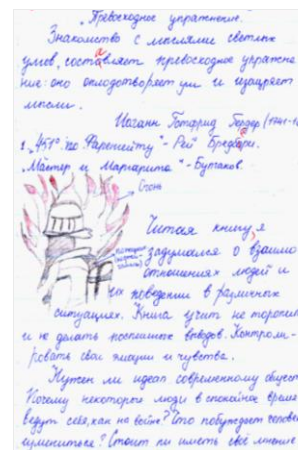 „Превосходное упражнение.
Знакомство с мыслями светлых
умов, составляет превосходное упражне
ние: оно оплодотворяет ум и изощряет
мысли.
Иоганн Готфрид Гердер (1741-18
1. „451° по Фаренгейту" - Рей Бредбери.
„Мастер и Маргарита" - Булгаков.
Огонь
Читая книгу, я
задумался о взаимо
отношениях людей и
их поведении в различных
ситуациях. Книга учит не торопит
и не делать поспешных выводов. Контроли-
ровать свои эмоции и чувства.
Нужен ли идеал современному общест
Почему некоторые люди в спокойное время
ведут себя, как на войне? Что побуждает человек
измениться? Стоит ли иметь своё мнение